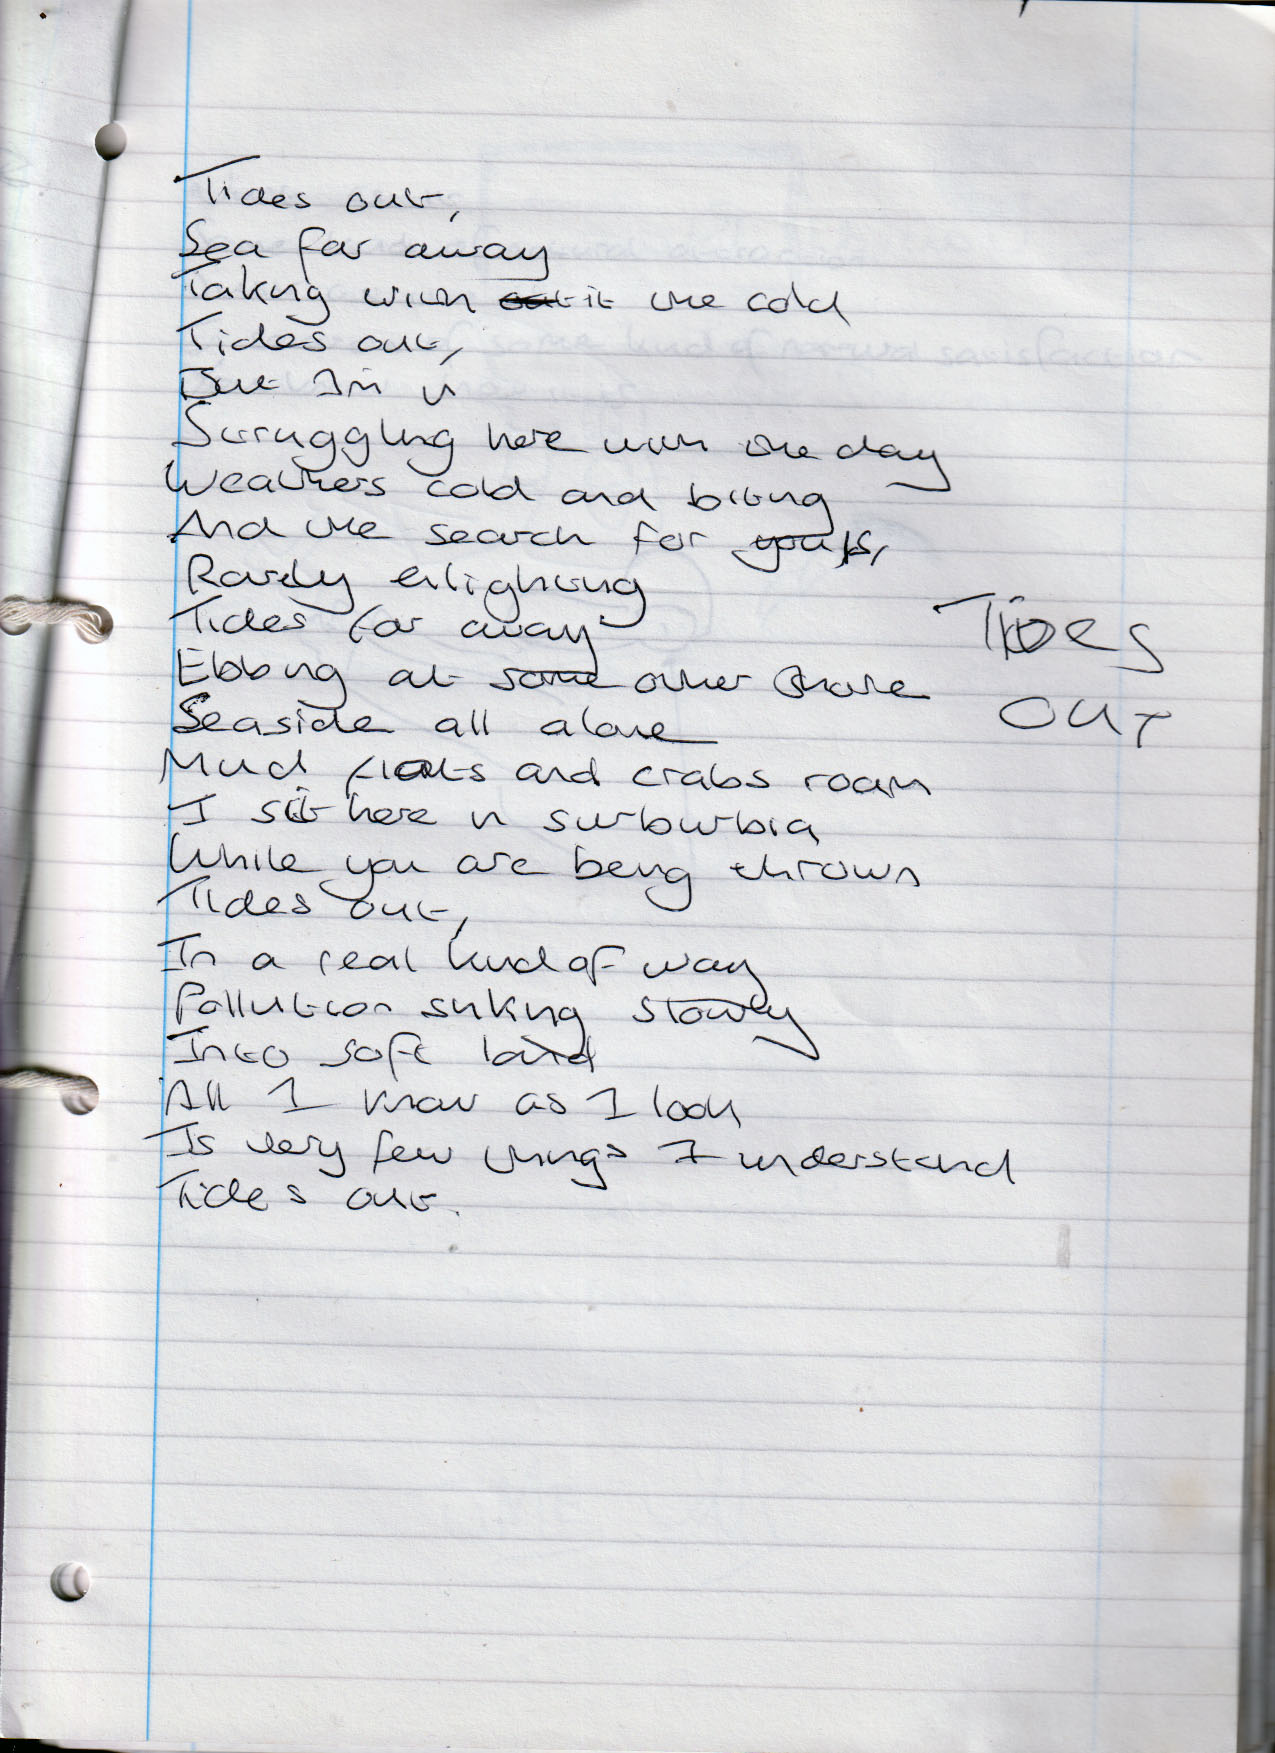 Tides out,
Sea far away
Taking with it the cold
Tides out,
But I'm in
Struggling here with the day
Weathers cold and biting
And the search for
Rarely enlighting
Tides far away
Ebbing at some other shore
Seaside all alone
Mud flats and crabs roam
I sit here in surburbia
While you are being thrown
Tides out,
In a real kind of way
Pollution sinking slowly
Into soft land
All I know as I look
Is very few things I understand
Tides out.
TIDES
OUT